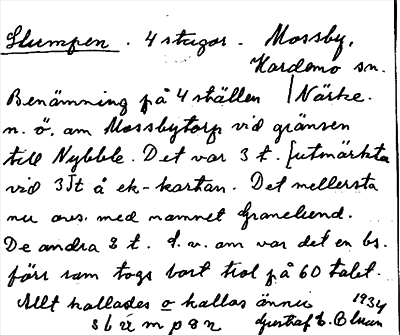 Slumpen. 4 stugor. Mossby,
Hardemo sn.
Benämning på 4 ställen | Närke.
n. ö. om Mossbytorp vid gränsen
till Nybble. Det var 3 t. [utmärkta
vid 3 Jt å ek-kartan. Det mellersta
nu avs. med namnet Granelund.
De andra 2 t. S. v. om var det en bs.
förr som togs bort trol på 60 talet.
Allt kallades o kallas ännu 1934
Gustaf E.